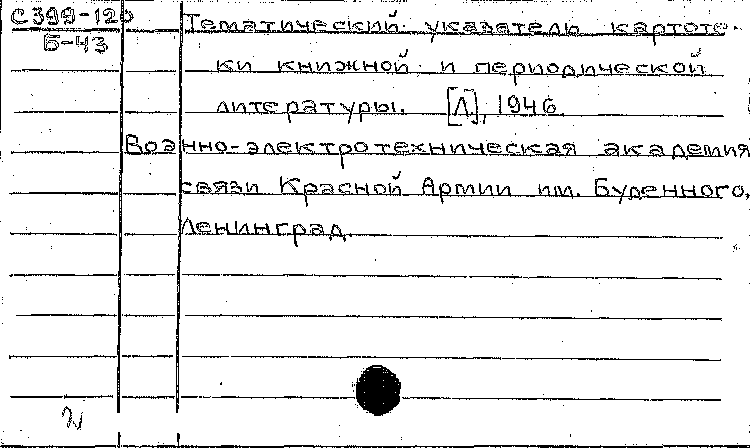 С399-120 Тематический указатель картоте-
Б-43
ки книжной и периодической
литературы. [Л], 1946.
Военно-электротехническая академия
связи Красной Армии им. Буденного,
Ленинград.